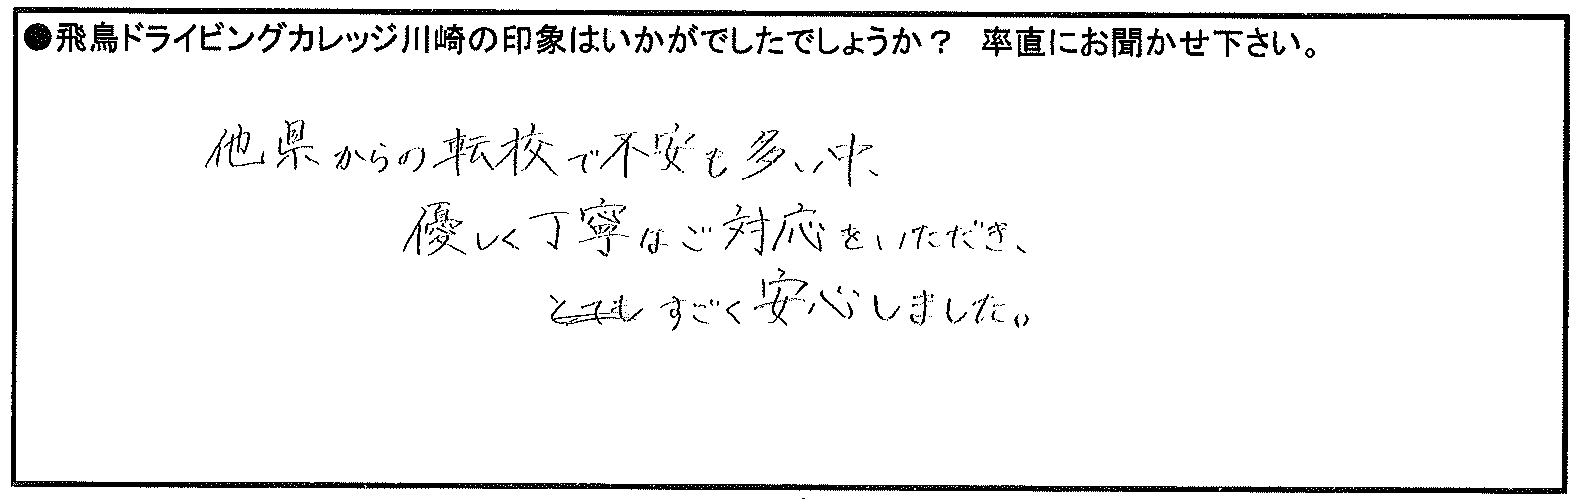 ●飛鳥ドライビングカレッジ川崎の印象はいかがでしたでしょうか？ 率直にお聞かせ下さい。
他県からの転校で不安も多い中、
優しく丁寧なご対応をいただき、
とても すごく安心しました。